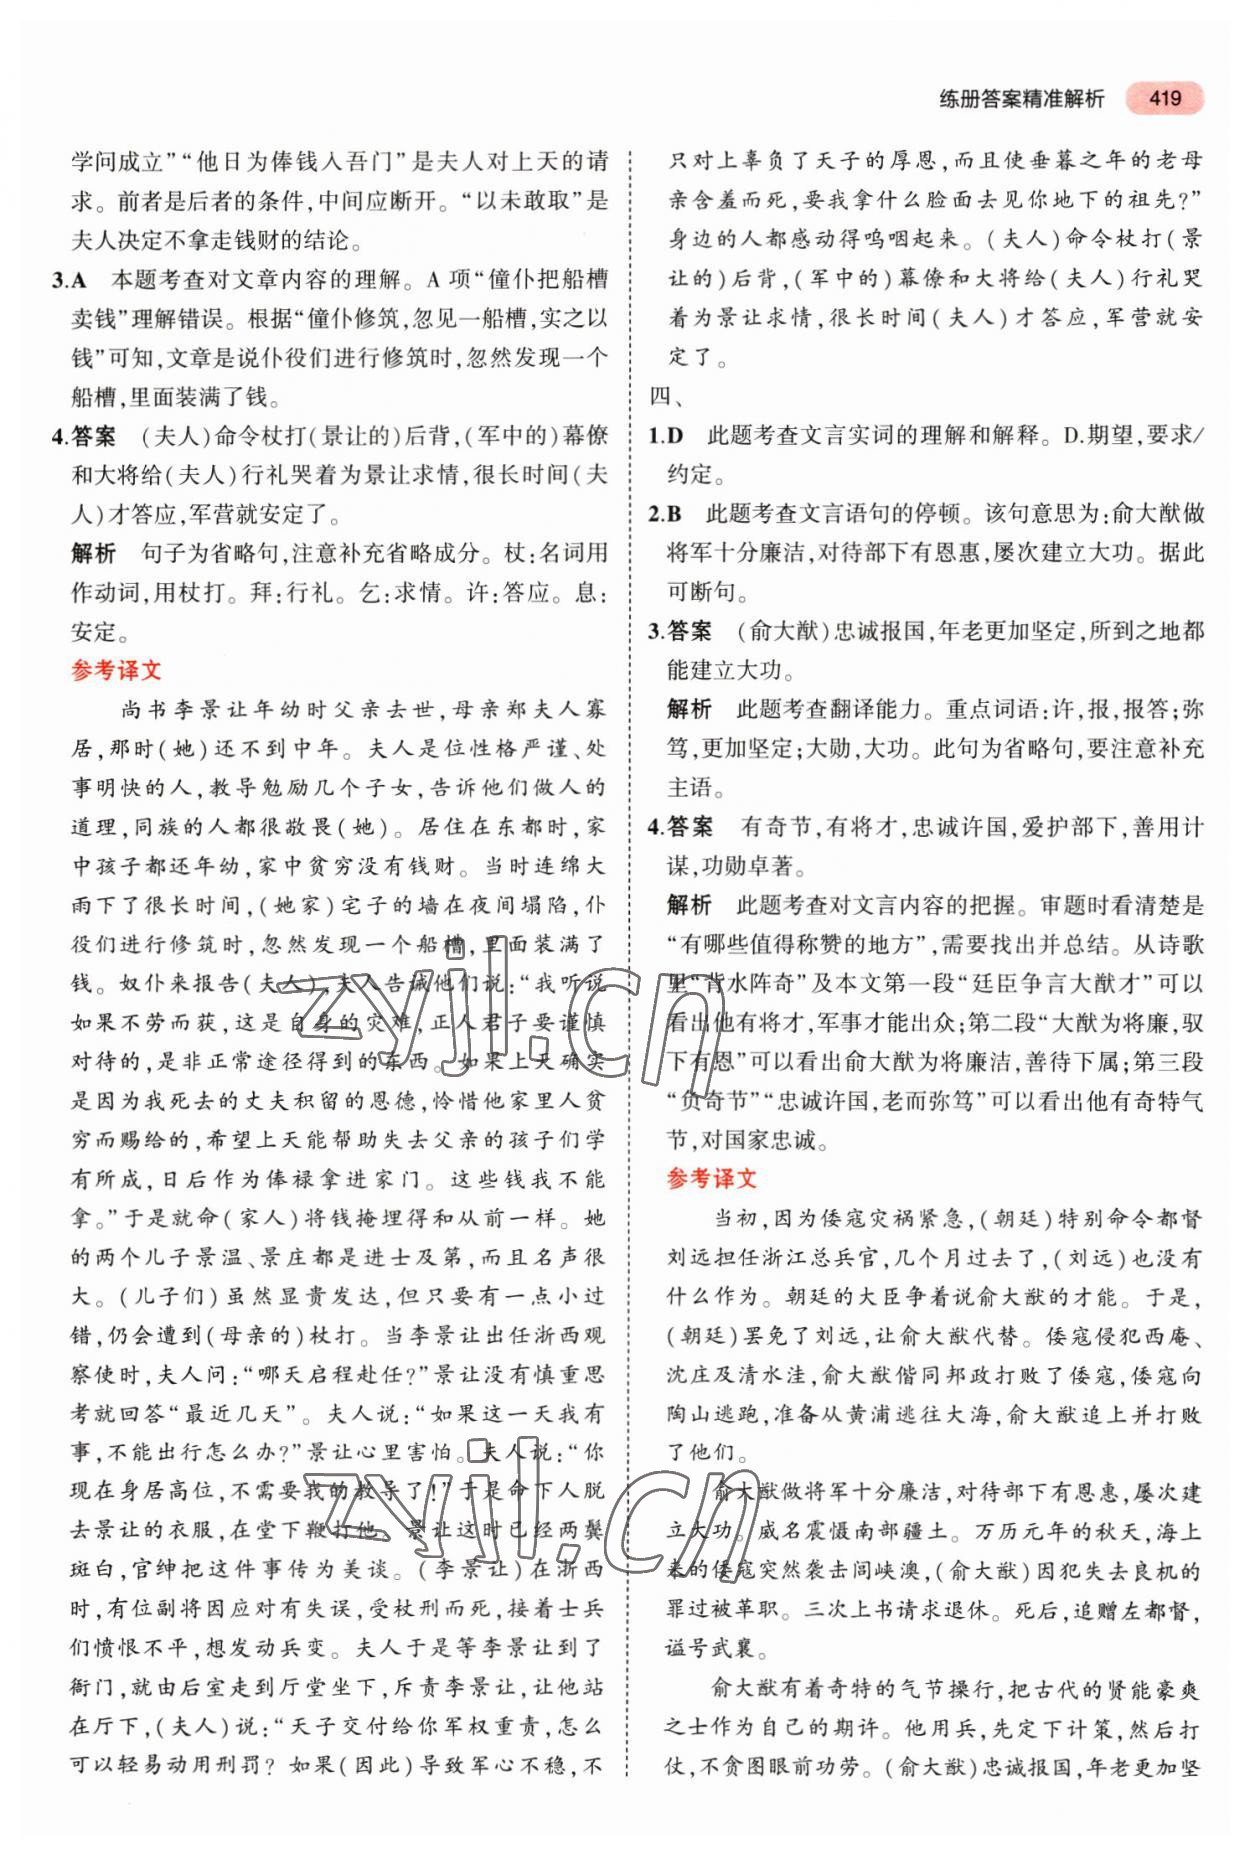 练册答案精准解析 419
学问成立”“他日为俸钱入吾门”是夫人对上天的请
求。前者是后者的条件,中间应断开。“以未敢取”是
夫人决定不拿走钱财的结论。
3.A 本题考查对文章内容的理解。A 项“僮仆把船槽
卖钱”理解错误。根据“僮仆修筑,忽见一船槽,实之以
钱”可知,文章是说仆役们进行修筑时,忽然发现一个
船槽,里面装满了钱。
4.答案 (夫人)命令杖打(景让的)后背,(军中的)幕僚
和大将给(夫人)行礼哭着为景让求情,很长时间(夫
人)才答应,军营就安定了。
解析 句子为省略句,注意补充省略成分。杖:名词用
作动词,用杖打。拜:行礼。乞:求情。许:答应。息:
安定。
参考译文
尚书李景让年幼时父亲去世,母亲郑夫人寡
居,那时(她)还不到中年。夫人是位性格严谨、处
事明快的人,教导勉励几个子女,告诉他们做人的
道理,同族的人都很敬畏(她)。居住在东都时,家
中孩子都还年幼,家中贫穷没有钱财。当时连绵大
雨下了很长时间,(她家)宅子的墙在夜间塌陷,仆
役们进行修筑时,忽然发现一个船槽,里面装满了
钱。奴仆来报告(夫人),夫人告诫他们说:“我听说
如果不劳而获,这是自身的灾难,正人君子要谨慎
对待的,是非正常途径得到的东西。如果上天确实
是因为我死去的丈夫积留的恩德,怜惜他家里人贫
穷而赐给的,希望上天能帮助失去父亲的孩子们学
有所成,日后作为俸禄拿进家门。这些钱我不能
拿。”于是就命(家人)将钱掩埋得和从前一样。她
的两个儿子景温、景庄都是进士及第,而且名声很
大。(儿子们)虽然显贵发达,但只要有一点小过
错,仍会遭到(母亲的)杖打。当李景让出任浙西观
察使时,夫人问:“哪天启程赴任?”景让没有慎重思
考就回答“最近几天”。夫人说:“如果这一天我有
事,不能出行怎么办?”景让心里害怕。夫人说:“你
现在身居高位,不需要我的教导了!”于是命下人脱
去景让的衣服,在堂下鞭打他。景让这时已经两鬓
斑白,官绅把这件事传为美谈。(李景让)在浙西
时,有位副将因应对有失误,受杖刑而死,接着士兵
们愤恨不平,想发动兵变。夫人于是等李景让到了
衙门,就由后室走到厅堂坐下,斥责李景让,让他站
在厅下,(夫人)说:“天子交付给你军权重责,怎么
可以轻易动用刑罚?如果(因此)导致军心不稳,不
只对上辜负了天子的厚恩,而且使垂暮之年的老母
亲含羞而死,要我拿什么脸面去见你地下的祖先?”
身边的人都感动得呜咽起来。(夫人)命令杖打(景
让的)后背,(军中的)幕僚和大将给(夫人)行礼哭
着为景让求情,很长时间(夫人)才答应,军营就安
定了。
四、
1.D 此题考查文言实词的理解和解释。D.期望,要求/
约定。
2.B 此题考查文言语句的停顿。该句意思为:俞大猷做
将军十分廉洁,对待部下有恩惠,屡次建立大功。据此
可断句。
3.答案 (俞大猷)忠诚报国,年老更加坚定,所到之地都
能建立大功。
解析 此题考查翻译能力。重点词语:许,报,报答;弥
笃,更加坚定;大勋,大功。此句为省略句,要注意补充
主语。
4.答案 有奇节,有将才,忠诚许国,爱护部下,善用计
谋,功勋卓著。
解析 此题考查对文言内容的把握。审题时看清楚是
“有哪些值得称赞的地方”,需要找出并总结。从诗歌
里“背水阵奇”及本文第一段“廷臣争言大猷才”可以
看出他有将才,军事才能出众;第二段“大猷为将廉,驭
下有恩”可以看出俞大猷为将廉洁,善待下属;第三段
“负奇节”“忠诚许国,老而弥笃”可以看出他有奇特气
节,对国家忠诚。
参考译文
当初,因为倭寇灾祸紧急,(朝廷)特别命令都督
刘远担任浙江总兵官,几个月过去了,(刘远)也没有
什么作为。朝廷的大臣争着说俞大猷的才能。于是,
(朝廷)罢免了刘远,让俞大猷代替。倭寇侵犯西庵、
沈庄及清水洼,俞大猷偕同邦政打败了倭寇,倭寇向
陶山逃跑,准备从黄浦逃往大海,俞大猷追上并打败
了他们。
俞大猷做将军十分廉洁,对待部下有恩惠,屡次建
立大功。威名震慑南部疆土。万历元年的秋天,海上
来的倭寇突然袭击闾峡澳,(俞大猷)因失去良机的
罪过被革职。三次上书请求退休。死后,追赠左都督,
谥号武襄。
俞大猷有着奇特的气节操行,把古代的贤能豪爽
之士作为自己的期许。他用兵,先定下计策,然后打
仗,不贪图眼前功劳。(俞大猷)忠诚报国,年老更加坚
zyjl.cn
zyjl.cn